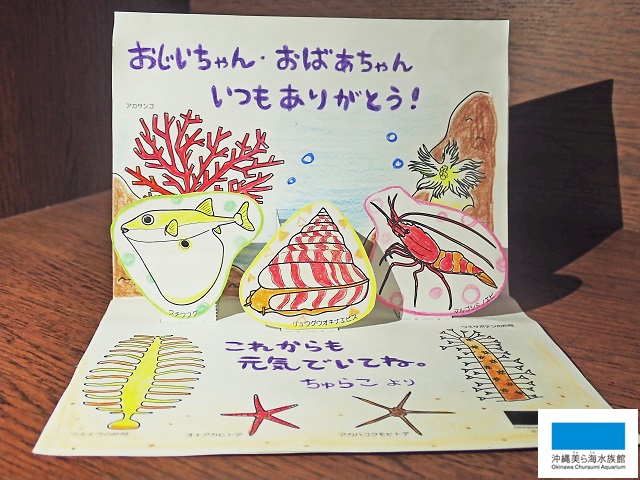 おじいちゃん・おばあちゃん
いつもありがとう!
アカサンゴ
ウチワフグ
リュウグウオキナエビス
マルゴシミノエビ
これからも
元気でいてね。
ちゅらこ より
オキアカヒトデ
アカハコクモヒトデ
沖縄美ら海水族館
Okinawa Churaumi Aquarium